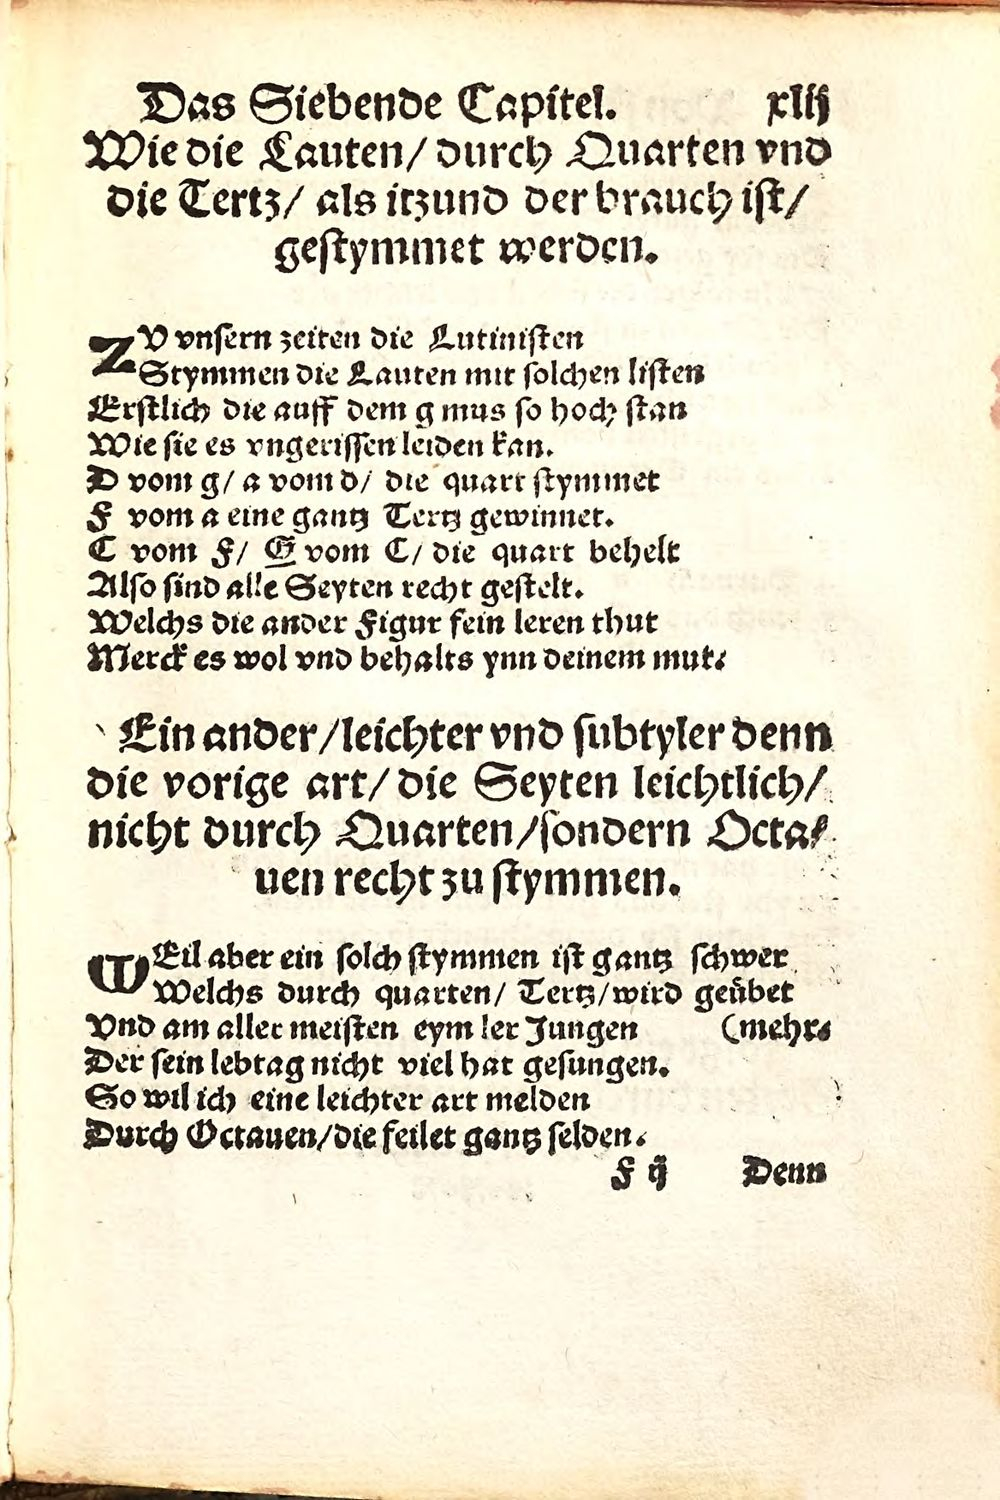 Das Siebende Capitel. xliij
Wie die Lauten/ durch Quarten vnd
die Tertz/ als itzund der brauch ist/
gestymmet werden.
ZV vnsern zeiten die Lutinisten
Stymmen die Lauten mit solchen listen
Erstlich die auff dem g mus so hoch stan
Wie sie es vngerissen leiden kan.
D vom g/ a vom d/ die quart stymmet
F vom a eine gantz Tertz gewinnet.
C vom F/ G vom C/ die quart behelt
Also sind alle Seyten recht gestelt.
Welchs die ander Figur fein leren thut
Merck es wol vnd behalts ynn deinem mut.
Ein ander/leichter vnd subtyler denn
die vorige art/ die Seyten leichtlich/
nicht durch Quarten/sondern Octa-
uen recht zu stymmen.
WEil aber ein solch stymmen ist gantz schwer
Welchs durch quarten/ Tertz/wird geübet
Vnd am aller meisten eym ler Jungen (mehr.
Der sein lebtag nicht viel hat gesungen.
So wil ich eine leichter art melden
Durch Octauen/die feilet gantz selden.
F ij Denn